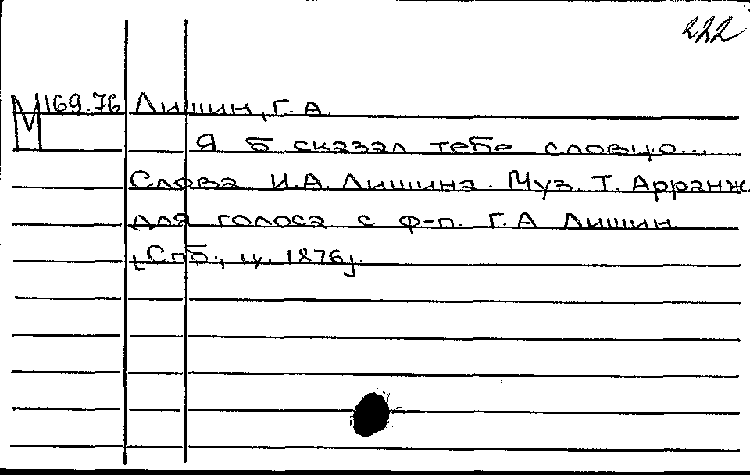 222
М 169.76 Лишин, Г. А.
Я б сказал тебе словцо...
Слова И.А. Лишина. Муз. Т. Арранж.
для голоса с ф-п. Г.А Лишин.
[Спб., ц. 1876].